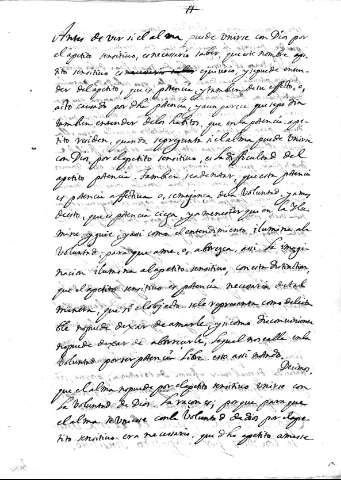 Antes de ver si el alma puede vnirse con Dios por
el apetito sensitivo, es necesario saber, que este nombre ape-
tito sensitivo es equivoco, y se puede enten-
der del apetito, que es potencia, y tambien de su efecto, o,
acto causado por dha potencia, y aun parece que se podra
tambien entender de los habitos, que en la potencia ape-
tito residen, quando se pregunta si el alma puede vnirse
con Dios, por el apetito sensitivo, es la dificultad del
apetito potencia. Tambien se ade notar, que esta potencia
es potencia affectiva a, semejança de la Voluntad, y a mas
desto, que es potencia ciega, y a menester que en la alu-
mbre y guie, y asi como el entendimiento ilumina a la
Voluntad, para que ame, o, aborrezca, asi la imagi-
nacion ilumina al apetito sensitivo, con esta distinction,
que el apetito sensitivo es potencia necesaria de tal
manera, que si el objecto se le representa como deleita-
ble no puede dexar de amarle, y si como disconveniente
no puede dexar de aborrecerle, lo qual no se alla en la
Voluntad por ser potencia libre. esto asi notado.
Decimos,
que el alma no puede por el apetito sensitivo vnirse con
la Voluntad de Dios. la raçon es; porque para que
el alma se vniesse con la Voluntad de dios por el ape-
tito sensitivo era necessario, que dho apetito amasse